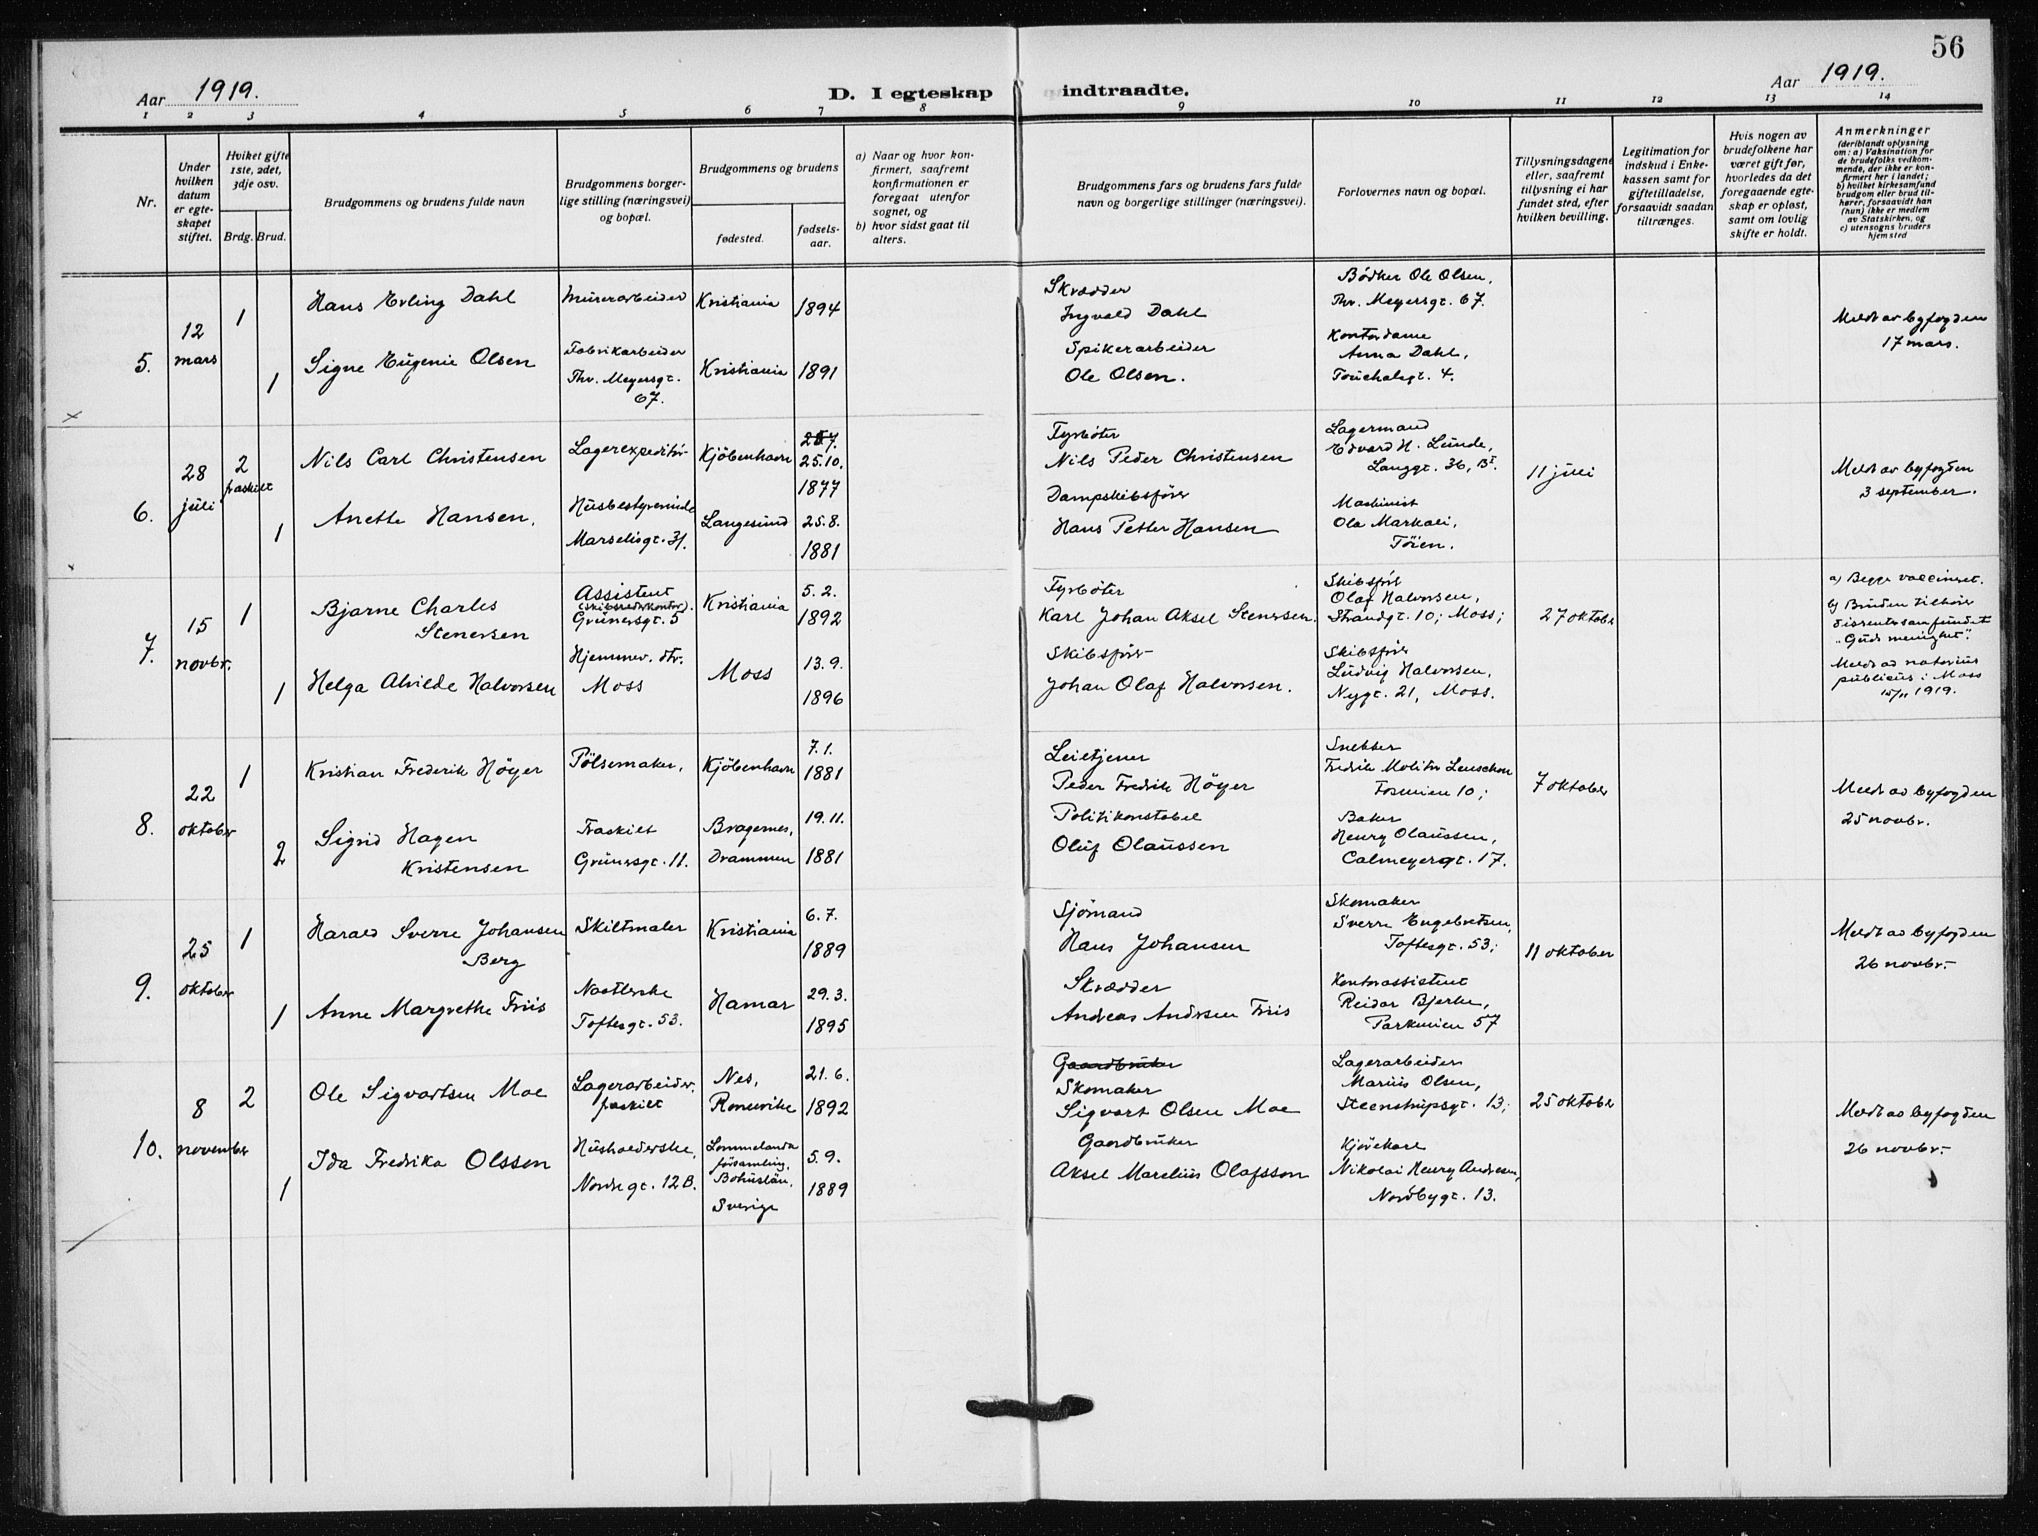 56
Aar 1919.
D. I egteskap indtraadte.
Aar 1919.
1 2 3 4 5 6 7 8 9 10 11 12 13 14
Nr.
Under hvilken datum er egteskapet stiftet.
Hviket gifte 1ste, 2det, 3dje osv.
Brdg. Brud.
Brudgommens og brudens fulde navn
Brudgommens borgerlige stilling (næringsvei) og bopæl.
Brudgommens og brudens
fødested.
fødselsaar.
a) Naar og hvor konfirmert, saafremt konfirmationen er foregaat utenfor sognet, og
b) hvor sidst gaat til alters.
Brudgommens fars og brudens fars fulde navn og borgerlige stillinger (næringsvei).
Forlovernes navn og bopæl.
Tillysningsdagene eller, saafremt tillysning ei har fundet sted, efter hvilken bevilling.
Legitimation for indskud i Enkekassen samt for giftetilladelse, forsaavidt saadan tiltrænges.
Hvis nogen av brudefolkene har været gift før, hvorledes da det foregaaende egteskap er opløst, samt om lovlig skifte er holdt.
Anmerkninger
(deriblandt oplysning om: a) Vaksination for de brudefolks vedkommende, der ikke er konfirmert her i landet;
b) hvilket kirkesamfund brudgom eller brud tilhører, forsaavidt han (hun) ikke er medlem av Statskirken, og
c) utensogns bruders hjemsted
5.
12 mars
1
Hans Erling Dahl
Murerarbeider
Kristiania
1894
Skrædder
Ingvald Dahl
Bødker Ole Olsen,
Thv. Meyersgt. 67.
Meldt av byfogden
17 mars.
1
Signe Eugenie Olsen
Fabrikarbeider
Thv. Meyersgt.
67.
Kristiania
1891
Spikerarbeider
Ole Olsen.
Kontordame
Anna Dahl,
4.
6.
28 juli
2
fraskilt
Nils Carl Christensen
Lagerexpeditör
Kjöbenhavn
25.10.
1877
Fyrböter
Nils Peder Christensen
Lagermand
Edvard H. Lunde,
Langgt. 36, B I.
11 juli
Meldt av byfogden
3 september.
1
Anette Hansen.
Husbestyrerinde
Marselisgt. 31.
Langesund
25.8.
1881
Dampskibsförer
Hans Petter Hansen
Maskinist
Ole Markali,
Töien.
7.
15 novbr.
1
Bjarne Charles
Stenersen
Assistent
(skibsrederkontor).
Grünersgt. 5
Kristiania
5.2.
1892
Fyrböter
Karl Johan Aksel Stenersen.
Skibsförer
Olaf Halvorsen,
Strandgt. 10; Moss;
27 oktober
a) Begge vaccineret.
b) Bruden tilhörer
dissentersamfundet
"Guds menighet".
Meldt av notarius
publicus i Moss
15/11 1919.
1
Helga Alvilde Halvorsen
Hjemmev. dtr.
Moss
Moss
13.9.
1896
Skibsförer
Johan Olaf Halvorsen.
Skibsförer
Ludvig Halvorsen,
Nygt. 21, Moss.
8.
22 oktober
1
Kristian Frederik Höyer
Pölsemaker,
Kjöbenhavn
7.1.
1881
Leietjener
Peder Fredrik Höyer
Snekker
Fredrik Molitor Leuschow
10;
7 oktober
Meldt av byfogden
25 novbr.
2
Sigrid Hagen
Kristensen
Fraskilt
Grünersgt. 11.
Bragernes,
Drammen
19.11.
1881
Politikonstabel
Oluf Olaussen
Baker
Henry Olaussen,
Calmeyersgt. 17.
9.
25 oktober
1
Harald Sverre Johansen
Berg
Skiltmaler
Kristiania
6.7.
1889
Sjömand
Hans Johansen
Skomaker
Sverre Engebretsen,
Toftesgt. 53;
11 oktober
Meldt av byfogden
26 novbr.
1
Anne Margrethe Friis
Naatlerske
Toftesgt. 53.
Hamar
29.3.
1895
Skrædder
Andreas Andersen Friis
Kontorassistent
Reidar Bjerke,
Parkveien 57
10.
8 november
2
Ole Sigvartsen Moe
Lagerarbeider.
fraskilt
Nes,
Romerike
21.6.
1892
Gaardbruker
Skomaker
Sigvart Olsen Moe
Lagerarbeider
Marius Olsen,
Steenstrupsgt. 13;
25 oktober
Meldt av byfogden
26 novbr.
1
Ida Fredrika Olsson
Husholderske,
Nordregt. 12B.
Lommelanda
församling,
Bohuslän,
Sverige
5.9.
1889
Gaardbruker
Aksel Marelius Olafsson
Kjörekarl
Nikolai Henry Andresen,
Nordbygt. 13.